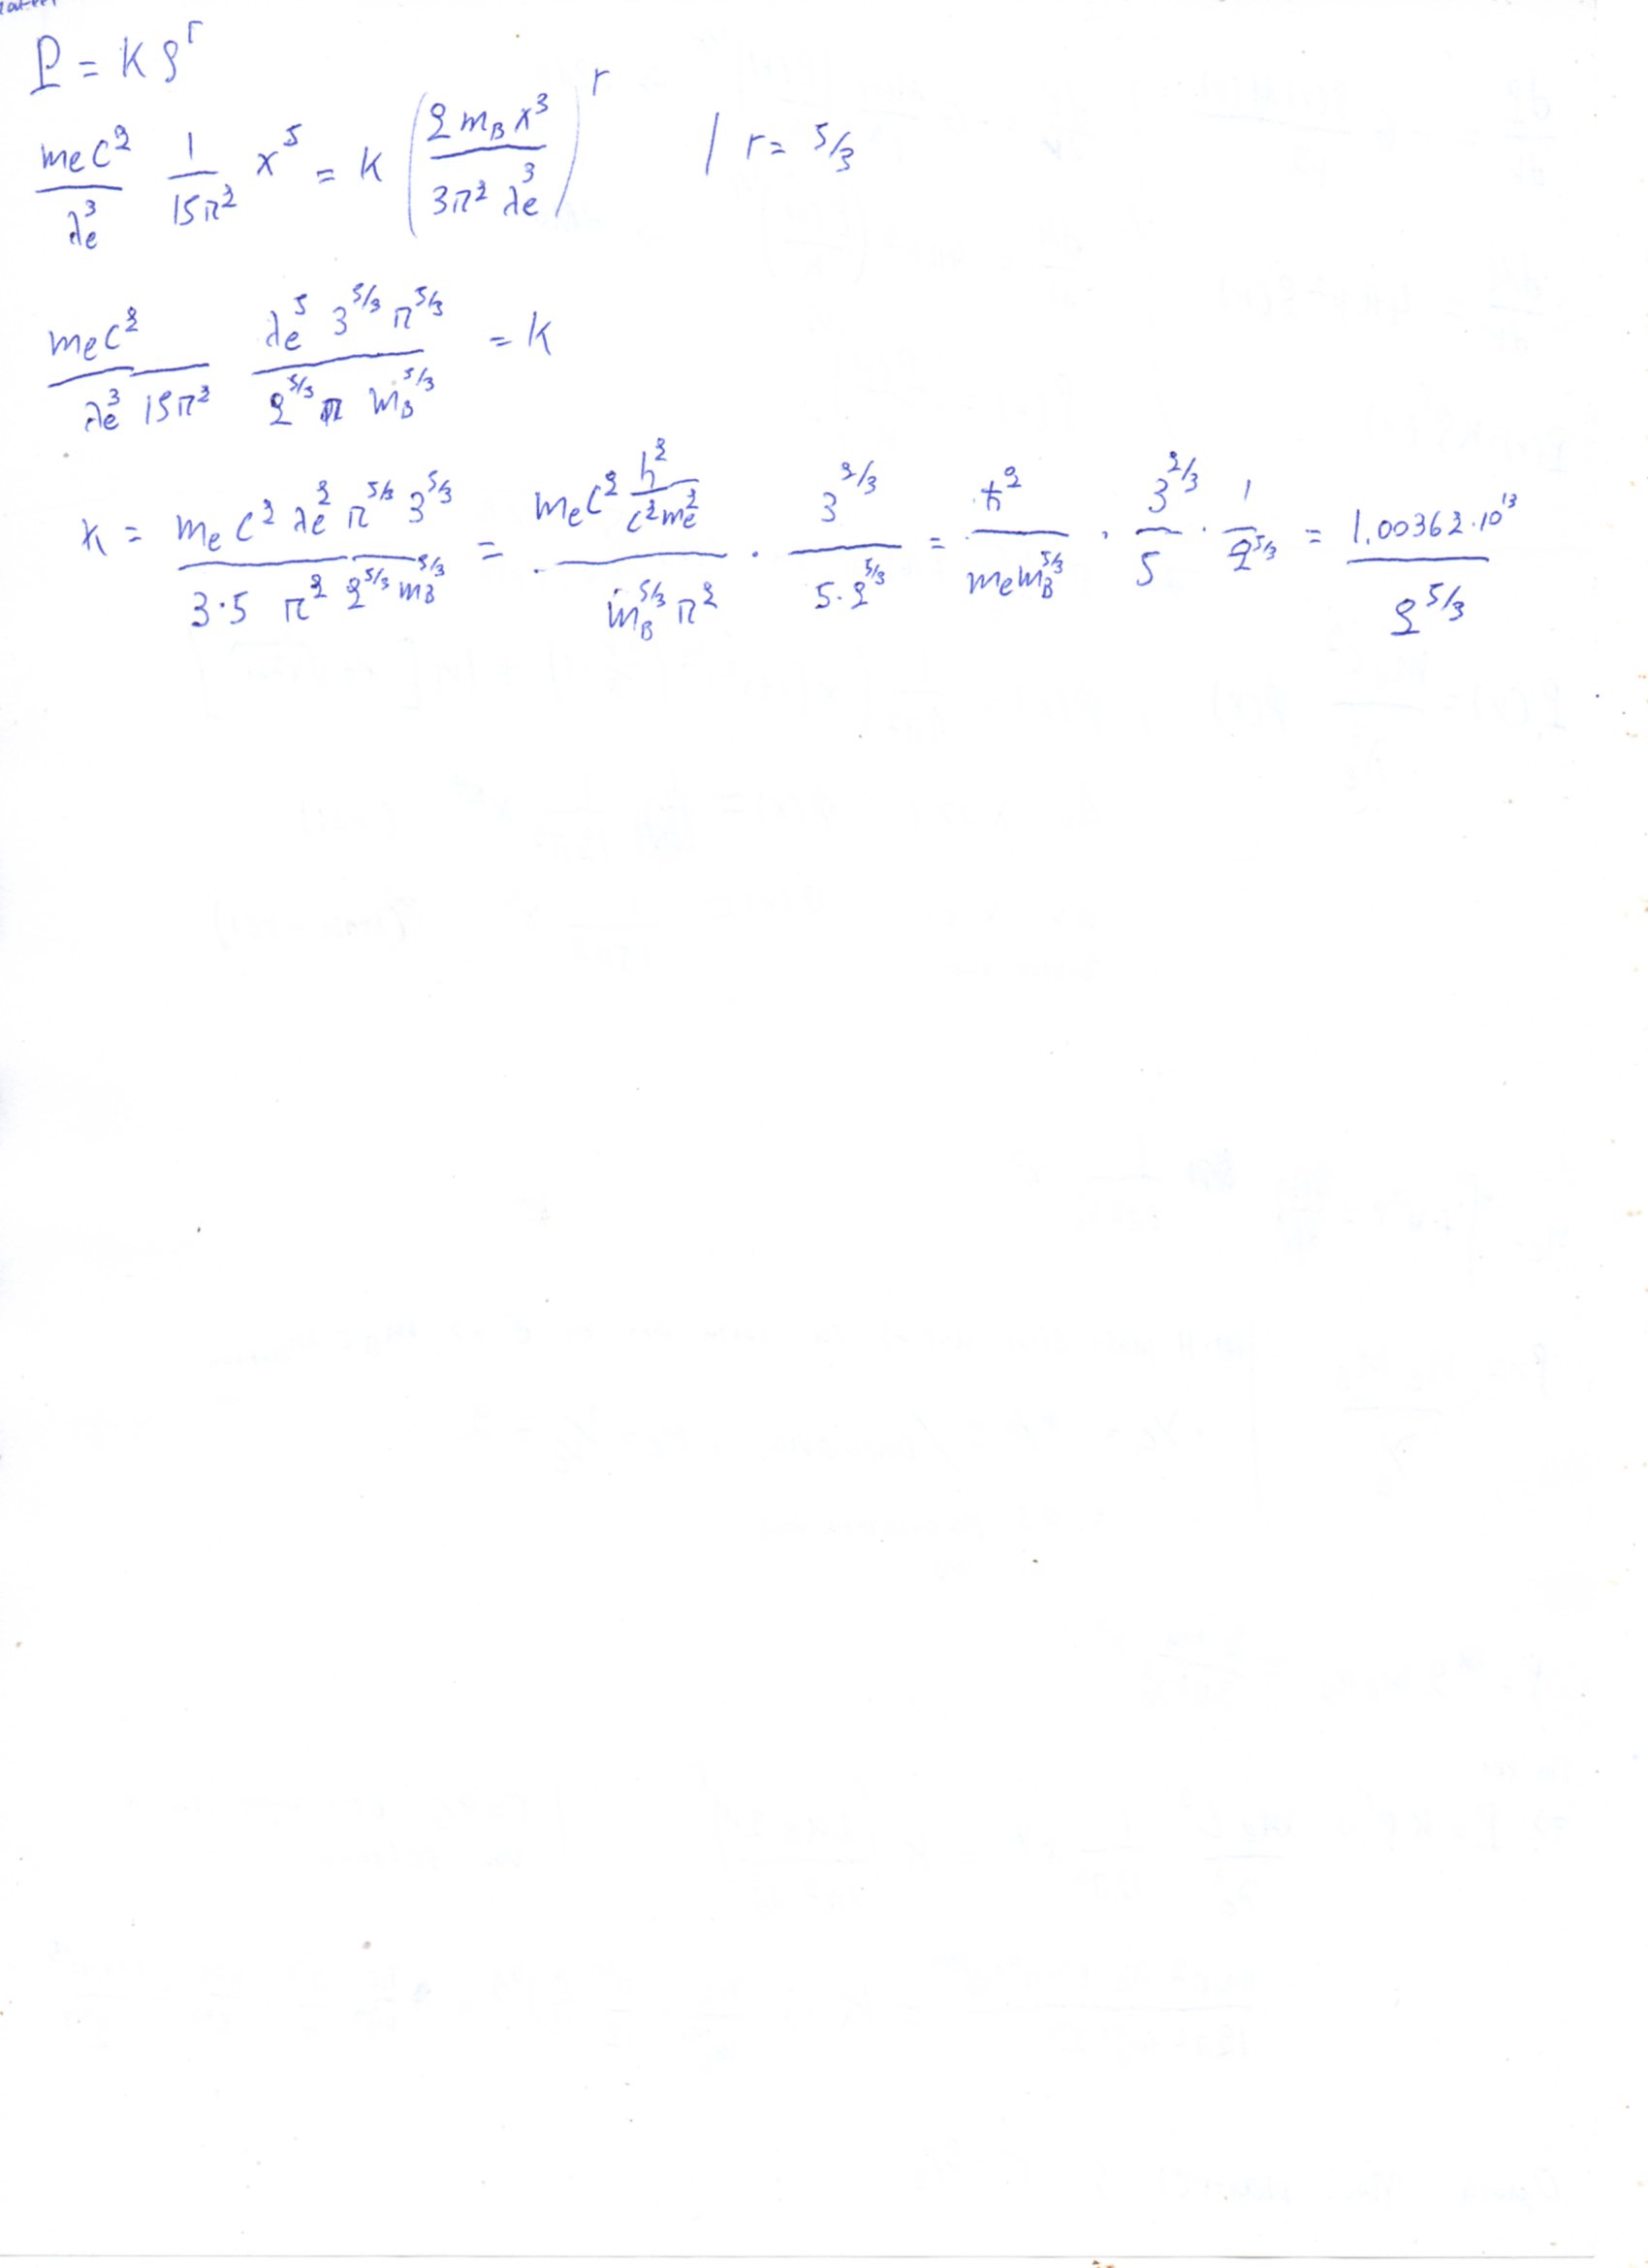 P = K ρ^Γ
m_e c² / λ_e³ 1/(15π²) x⁵ = K (2 m_B x³ / (3π² λ_e³))^Γ | Γ = 5/3
m_e c² / (λ_e³ 15π²) λ_e⁵ 3^(5/3) π^(5/3) / (2^(5/3) m_B^(5/3)) = K
K = m_e c² λ_e² π^(5/3) 3^(5/3) / (3·5 π² 2^(5/3) m_B^(5/3)) = m_e c² ħ²/(c² m_e²) / (m_B^(5/3) π²) · 3^(2/3) / (5·2^(5/3)) = ħ² / (m_e m_B^(5/3)) · 3^(2/3)/5 · 1/2^(5/3) = 1.00362·10¹³ / 2^(5/3)